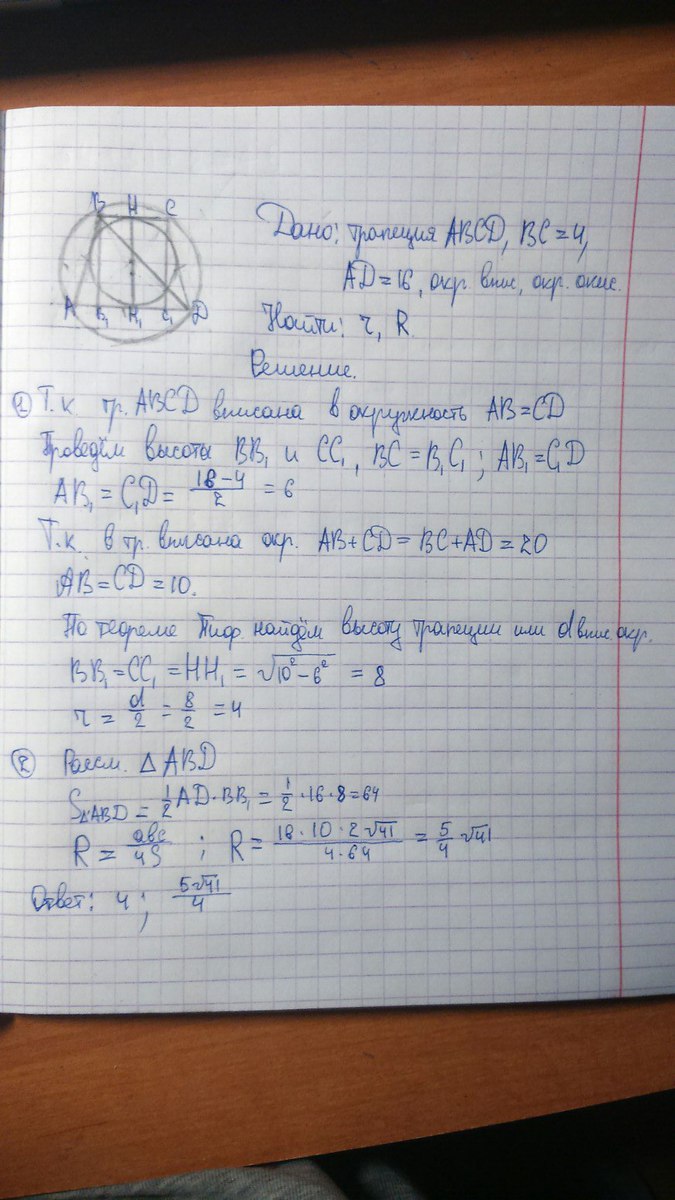 B H C
A B₁ H₁ C₁ D
Дано: трапеция ABCD, BC = 4,
AD = 16, окр. впис, окр. опис.
Найти: r, R.
Решение.
① Т.к. тр. ABCD вписана в окружность AB = CD
Проведём высоты BB₁ и CC₁, BC = B₁C₁; AB₁ = C₁D
AB₁ = C₁D = (16 − 4)/2 = 6
Т.к. в тр. вписана окр. AB + CD = BC + AD = 20
AB = CD = 10.
По теореме Пиф. найдём высоту трапеции или d впис. окр.
BB₁ = CC₁ = HH₁ = √(10² − 6²) = 8
r = d/2 = 8/2 = 4
② Рассм. △ ABD
S△ABD = 1/2 AD · BB₁ = 1/2 · 16 · 8 = 64
R = abc/4S ; R = (16 · 10 · 2√41)/(4 · 64) = 5/4 √41
Ответ: 4 ; 5√41/4